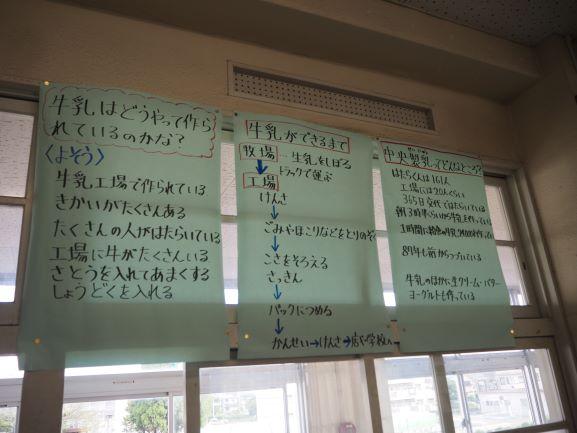 牛乳はどうやって作ら
れているのかな?
〈よそう〉
牛乳工場で作られている
きかいがたくさんある
たくさんの人がはたらいている
工場に牛がたくさんいる
さとうを入れてあまくする
しょうどくを入れる
牛乳ができるまで
牧場…生乳をしぼる
↓トラックで運ぶ
工場
けんさ
↓
ごみやほこりなどをとりのぞく
↓
こさをそろえる
さっきん
↓
パックにつめる
↓
かんせい→けんさ→店や学校へ
中央製乳ってどんなところ?
はたらく人は161人
工場には20人くらい
365日交代ではたらいている
朝3時半くらいから牛乳を作っていく
1時間に
作っている
87年も前からつづいている
牛乳のほかに生クリーム・バター
ヨーグルトも作っている